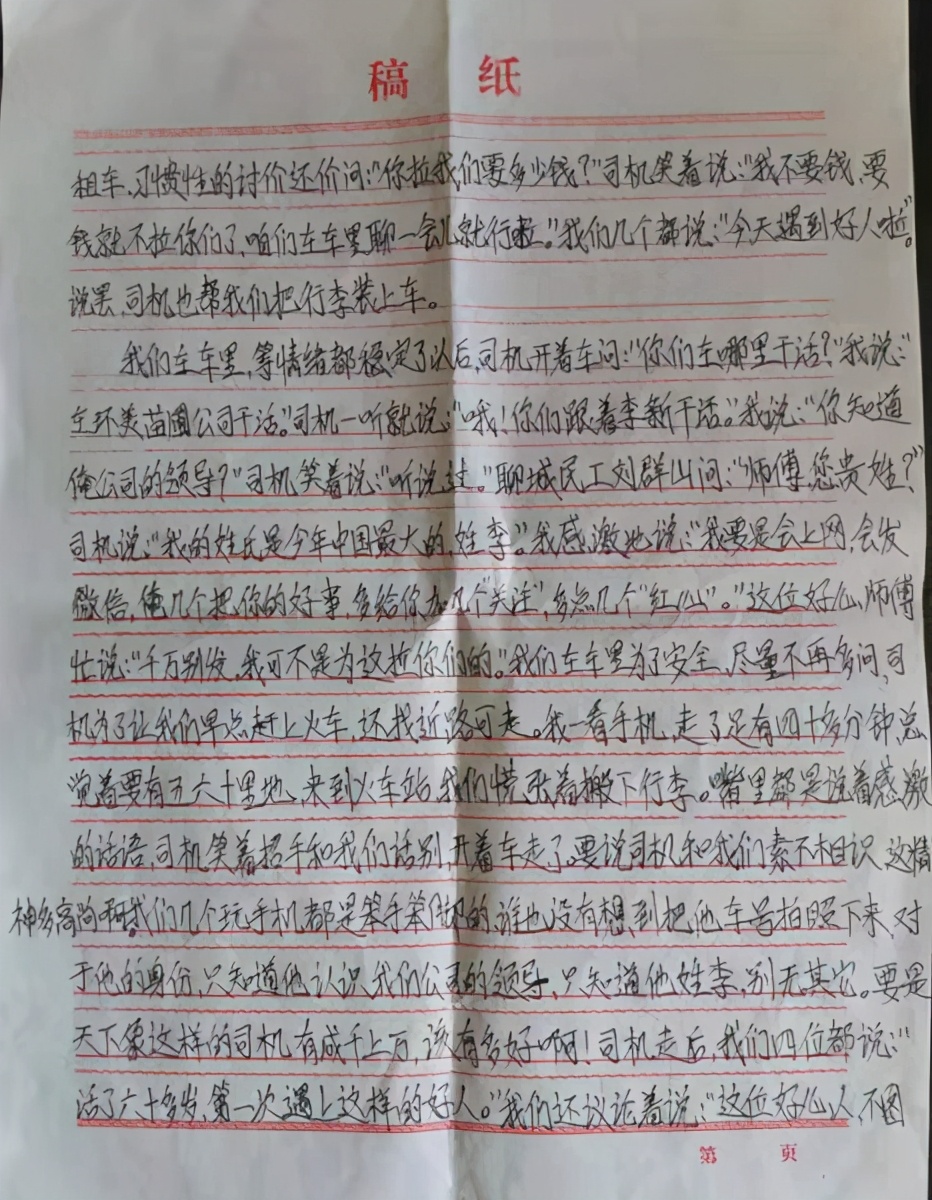 稿 纸
租车,习惯性的讨价还价问:“你拉我们要多少钱?”司机笑着说:“我不要钱,要
钱就不拉你们了,咱们在车里聊一会儿就行啦。”我们几个都说:“今天遇到好人啦。”
说罢,司机也帮我们把行李装上车。
我们在车里,等情绪都稳定了以后,司机开着车问:“你们在哪里干活?”我说:“
在环美苗圃公司干活。”司机一听就说:“哦!你们跟着李新干活。”我说:“你知道
俺公司的领导?”司机笑着说:“听说过。”聊城民工刘群山问:“师傅,您贵姓?”
司机说:“我的姓氏是今年中国最大的,姓李。”我感激地说:“我要是会上网,会发
微信,俺几个把你的好事,多给你加几个“关注”,多点几个“红心”。”这位好心师傅
忙说:“千万别发,我可不是为这拉你们的。”我们在车里为了安全,尽量不再多问,司
机为了让我们早点赶上火车,还找近路可走。我一看手机,走了足有四十多分钟,总
觉着要有五六十里地,来到火车站,我们慌张着搬下行李。嘴里都是说着感激
的话语,司机笑着招手和我们话别,开着车走了。要说司机和我们素不相识,这精
神多高尚啊。我们几个玩手机都是笨手笨脚的,谁也没有想到把他车号拍照下来,对
于他的身份,只知道他认识我们公司的领导,只知道他姓李,别无其它。要是
天下像这样的司机有成千上万,该有多好啊!司机走后,我们四位都说:“
活了六十多岁,第一次遇上这样的好人。”我们还议论着说:“这位好心人,不图
第 页